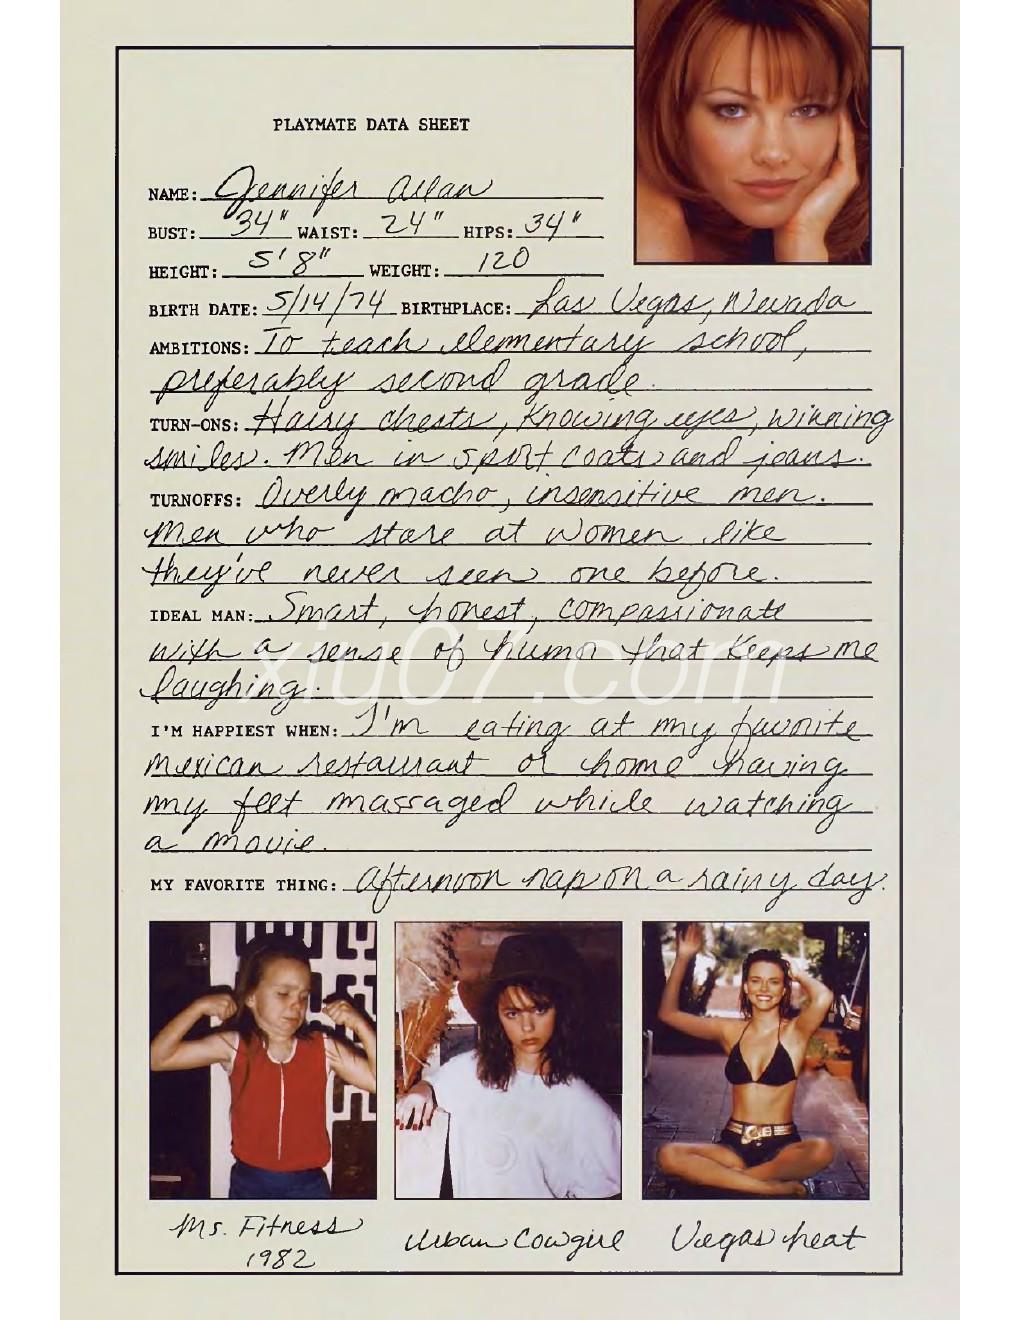 PLAYMATE DATA SHEET
NAME: Jennifer Allan
BUST: 34" WAIST: 24" HIPS: 34"
HEIGHT: 5'8" WEIGHT: 120
BIRTH DATE: 5/14/74 BIRTHPLACE: Las Vegas, Nevada
AMBITIONS: To teach elementary school,
preferably second grade.
TURN-ONS: Hairy chests, Knowing eyes, winning
smiles. Men in sport coats and jeans.
TURNOFFS: Overly macho, insensitive men.
Men who stare at women like
they've never seen one before.
IDEAL MAN: Smart, honest, compassionate
with a sense of humor that keeps me
laughing.
xiu07.com
I'M HAPPIEST WHEN: I'm eating at my favorite
mexican restaurant or home having
my feet massaged while watching
a movie.
MY FAVORITE THING: Afternoon nap on a rainy day.
Ms. Fitness
1982
Urban Cowgirl
Vegas heat